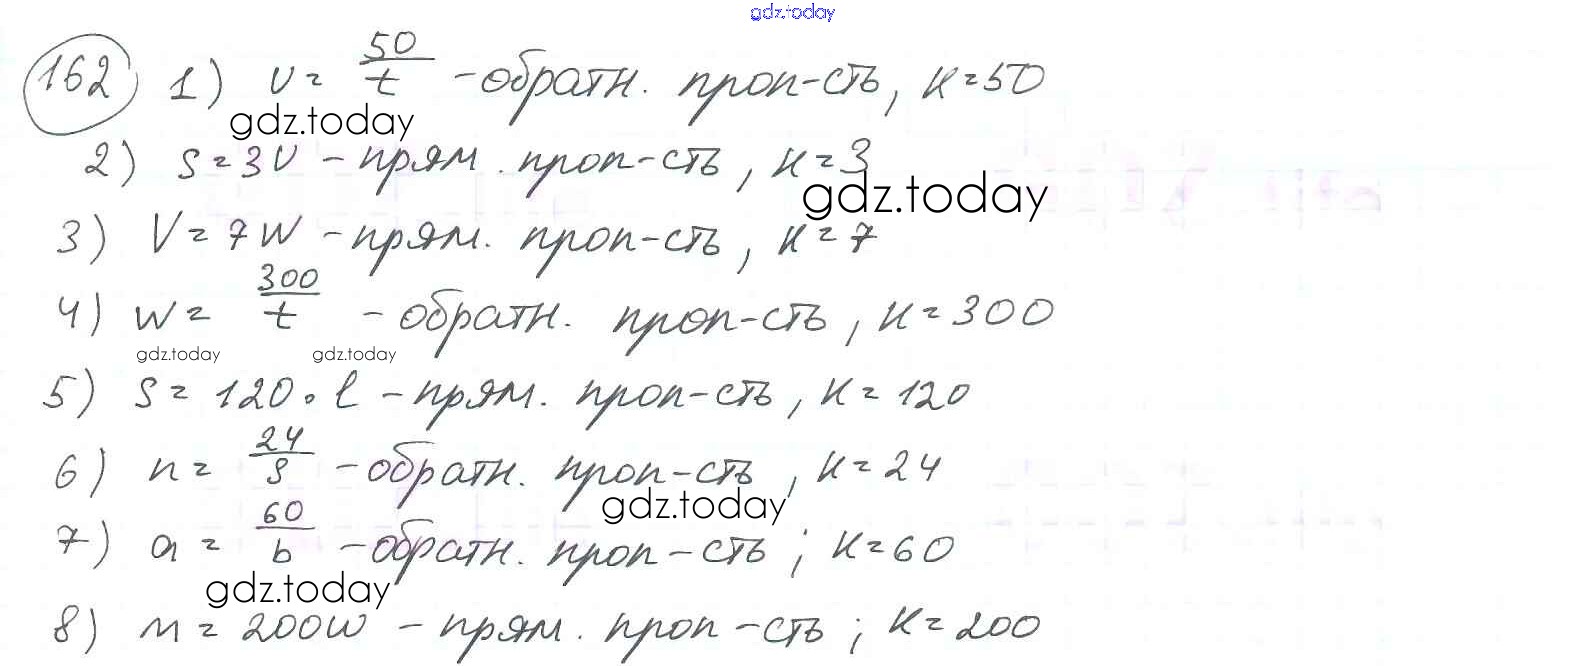 gdz.today
162 1) v = 50/t - обратн. проп-сть, к=50
gdz.today
2) s = 3v - прям. проп-сть, к=3
gdz.today
3) V = 7w - прям. проп-сть, к=7
4) w = 300/t - обратн. проп-сть, к=300
gdz.today gdz.today
5) s = 120 · l - прям. проп-сть, к=120
6) n = 24/s - обратн. проп-сть, к=24
gdz.today
7) a = 60/b - обратн. проп-сть; к=60
gdz.today
8) m = 200w - прям. проп-сть; к=200